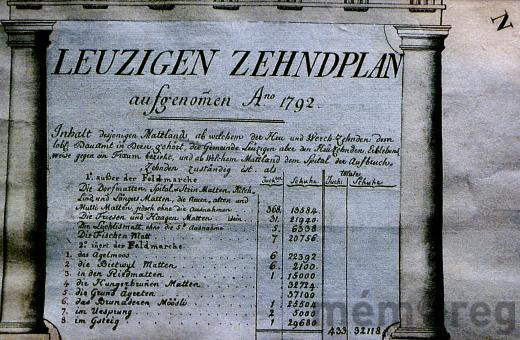 LEUZIGEN ZEHNDPLAN
aufgenom̅en Aᵒ 1792.
Inhalt desjenigen Mattlands, ab welchem der Heu und Werch-Zehnden dem
lobl. Bauamt in Bern gehört, die Gemeinde Leuzigen aber den Heüzehnden, Erblehens,
weise gegen ein Fixum bezieht, und ab welchem Mattland dem Spital der Aufbruch,
Zehnden zuständig ist. als
Total
1º. außer der Feldmarche Juch: Schuhe Juch: Schuhe
Die Dorfmatten, Spital, Stein Matten, Kilch,
Linz und Längris Matten, die Neuen, alten und
Mutti Matten, jedoch ohne die Ausnahmen 368. 13584.
Die Friesen und Haagen Matten sein 31. 21940.
Die Lüchlismatt, ohne die 5te Ausnahme 5. 6338
Die Fischen Matt 7 20756.
2º. inert der Feldmarche
1. das Agelmoos 6 22392
2. die Bietwyl Matten 6. 2100.
3. in den Riedmatten 1 15000
4. die Hungerbrunen Matten 32724
5. die Grund Agerten 37100
6. das Brunaderen Möösli 1 25504
7. im Ursprung 2 5000
8. im Gsteig 1 29680
433 32118
mémoreg
N